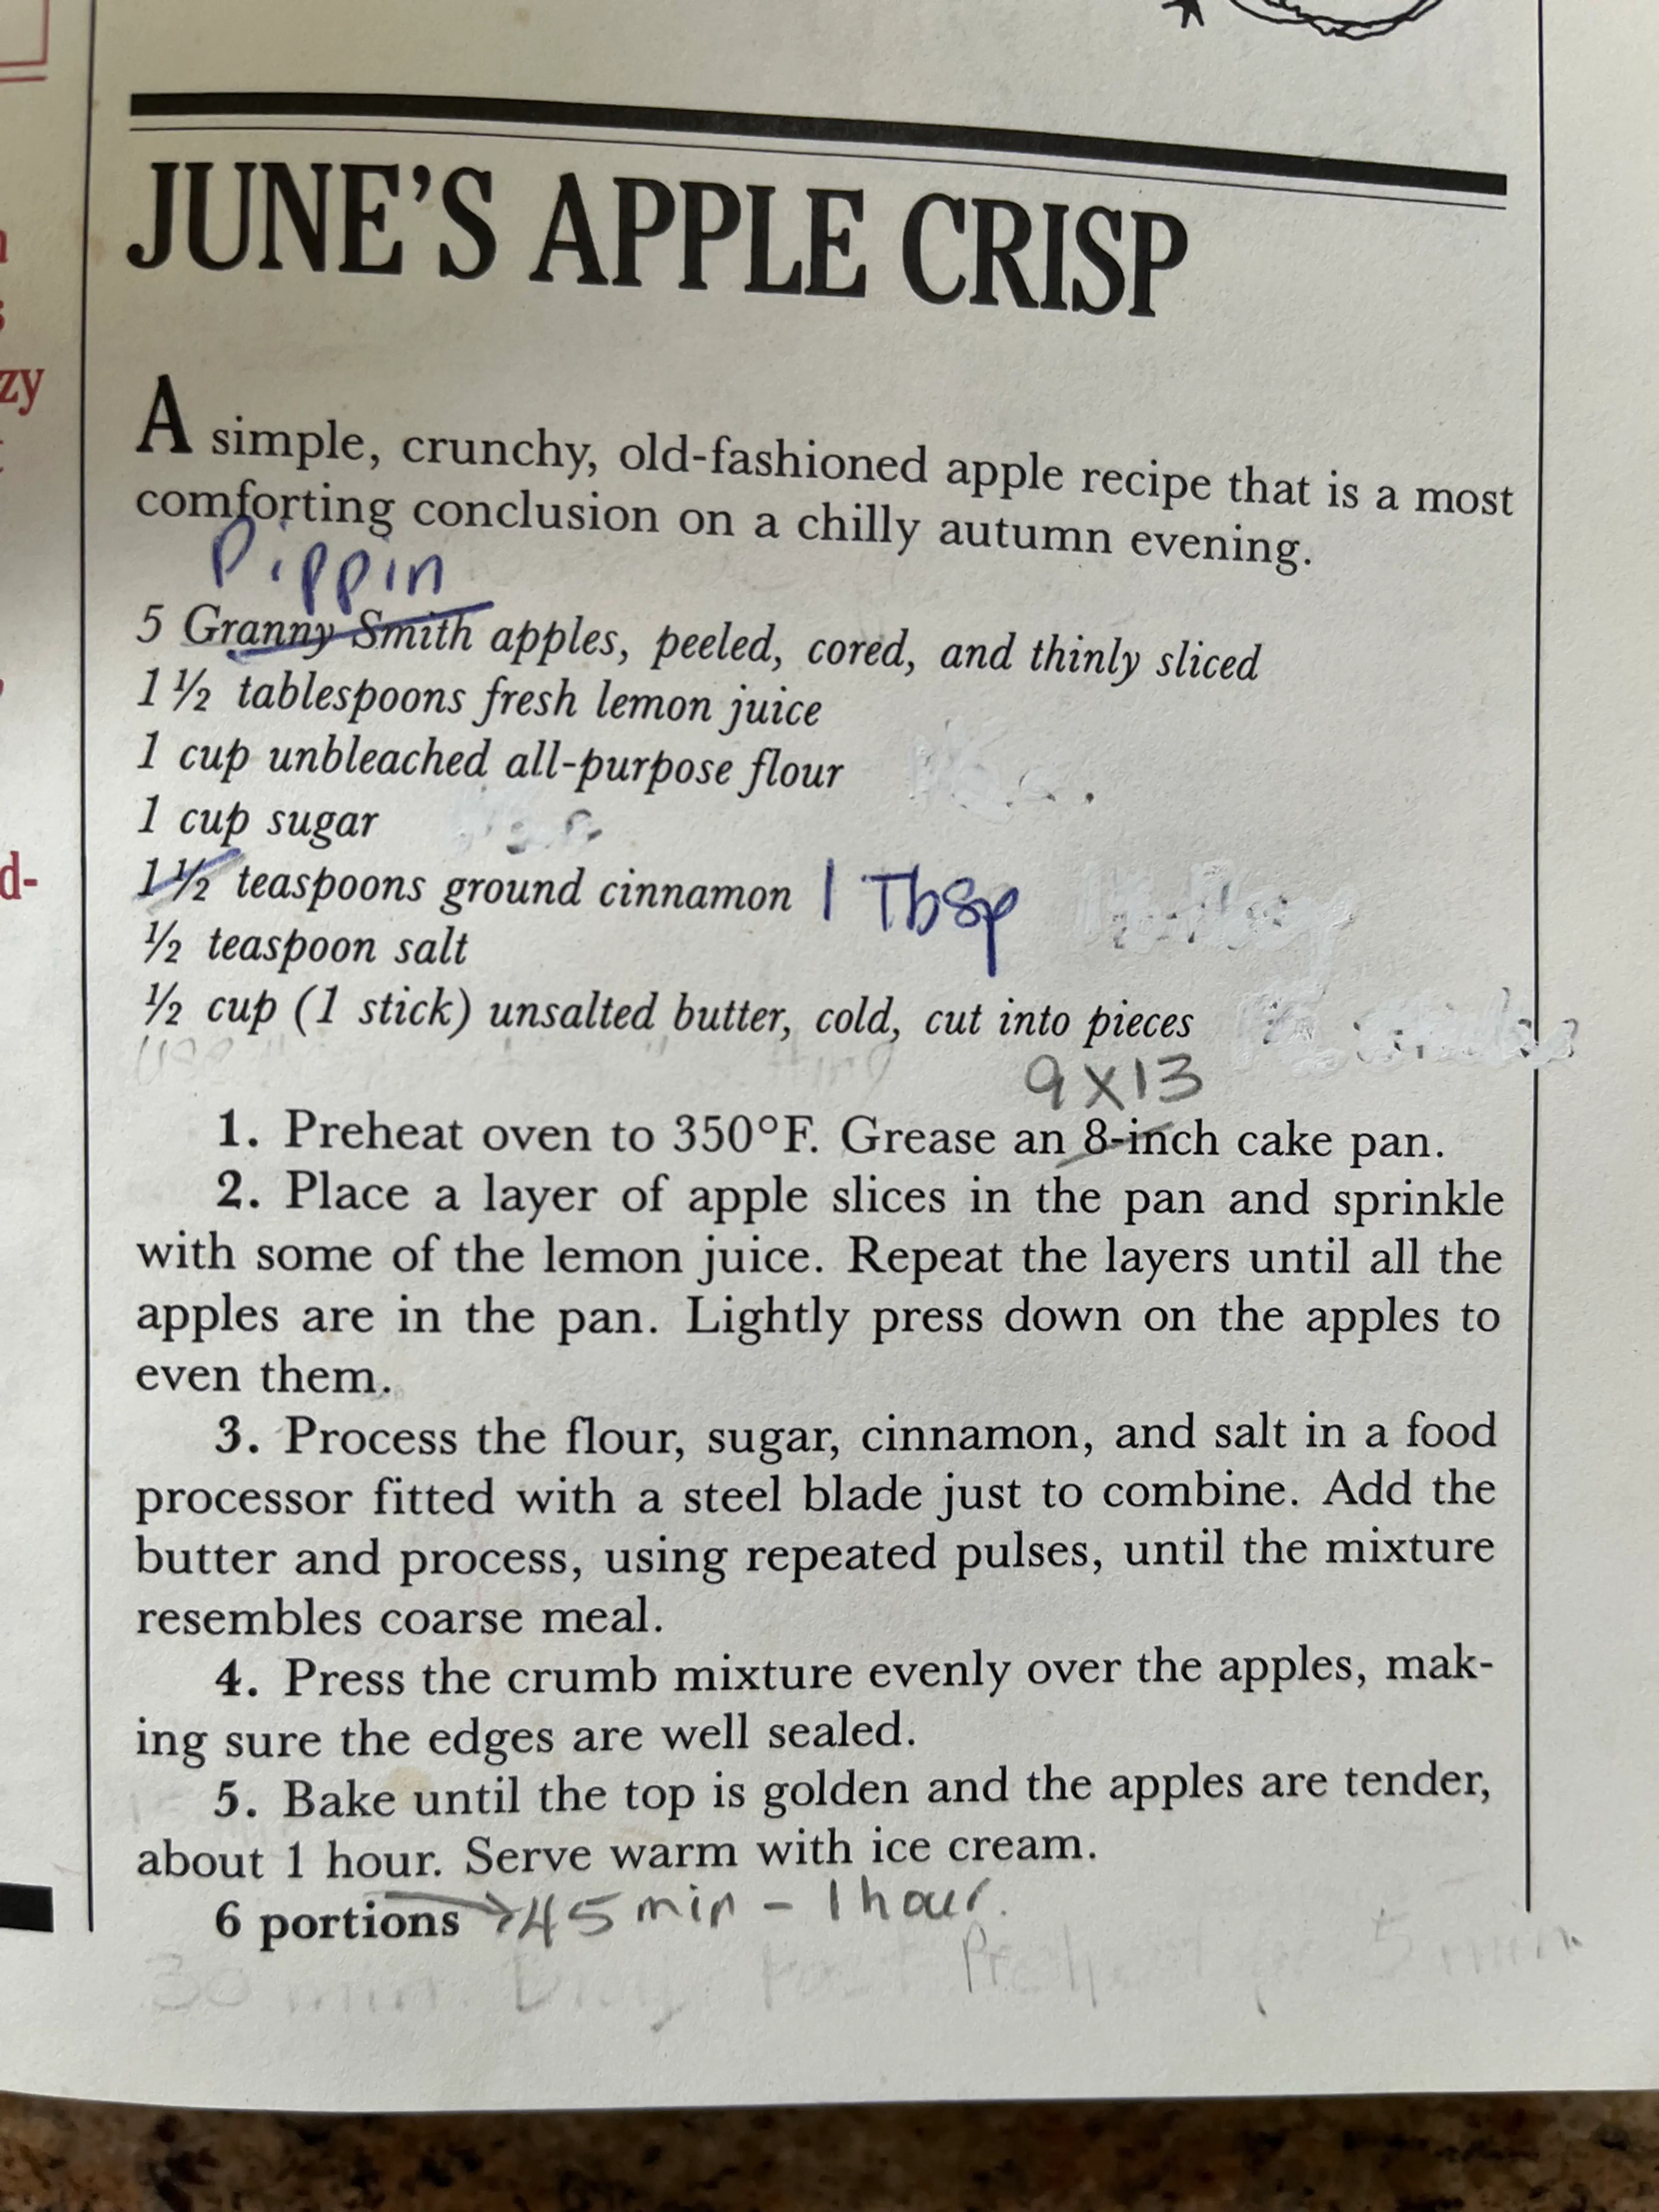 zy
d-
JUNE'S APPLE CRISP
A simple, crunchy, old-fashioned apple recipe that is a most
comforting conclusion on a chilly autumn evening.
Pippin
5 Granny Smith apples, peeled, cored, and thinly sliced
1 ½ tablespoons fresh lemon juice
1 cup unbleached all-purpose flour
1 cup sugar
1 ½ teaspoons ground cinnamon 1 Tbsp
½ teaspoon salt
½ cup (1 stick) unsalted butter, cold, cut into pieces
9X13
1. Preheat oven to 350°F. Grease an 8-inch cake pan.
2. Place a layer of apple slices in the pan and sprinkle
with some of the lemon juice. Repeat the layers until all the
apples are in the pan. Lightly press down on the apples to
even them.
3. Process the flour, sugar, cinnamon, and salt in a food
processor fitted with a steel blade just to combine. Add the
butter and process, using repeated pulses, until the mixture
resembles coarse meal.
4. Press the crumb mixture evenly over the apples, mak-
ing sure the edges are well sealed.
5. Bake until the top is golden and the apples are tender,
about 1 hour. Serve warm with ice cream.
6 portions → 45 min - 1 hour.
30 min. 5 min